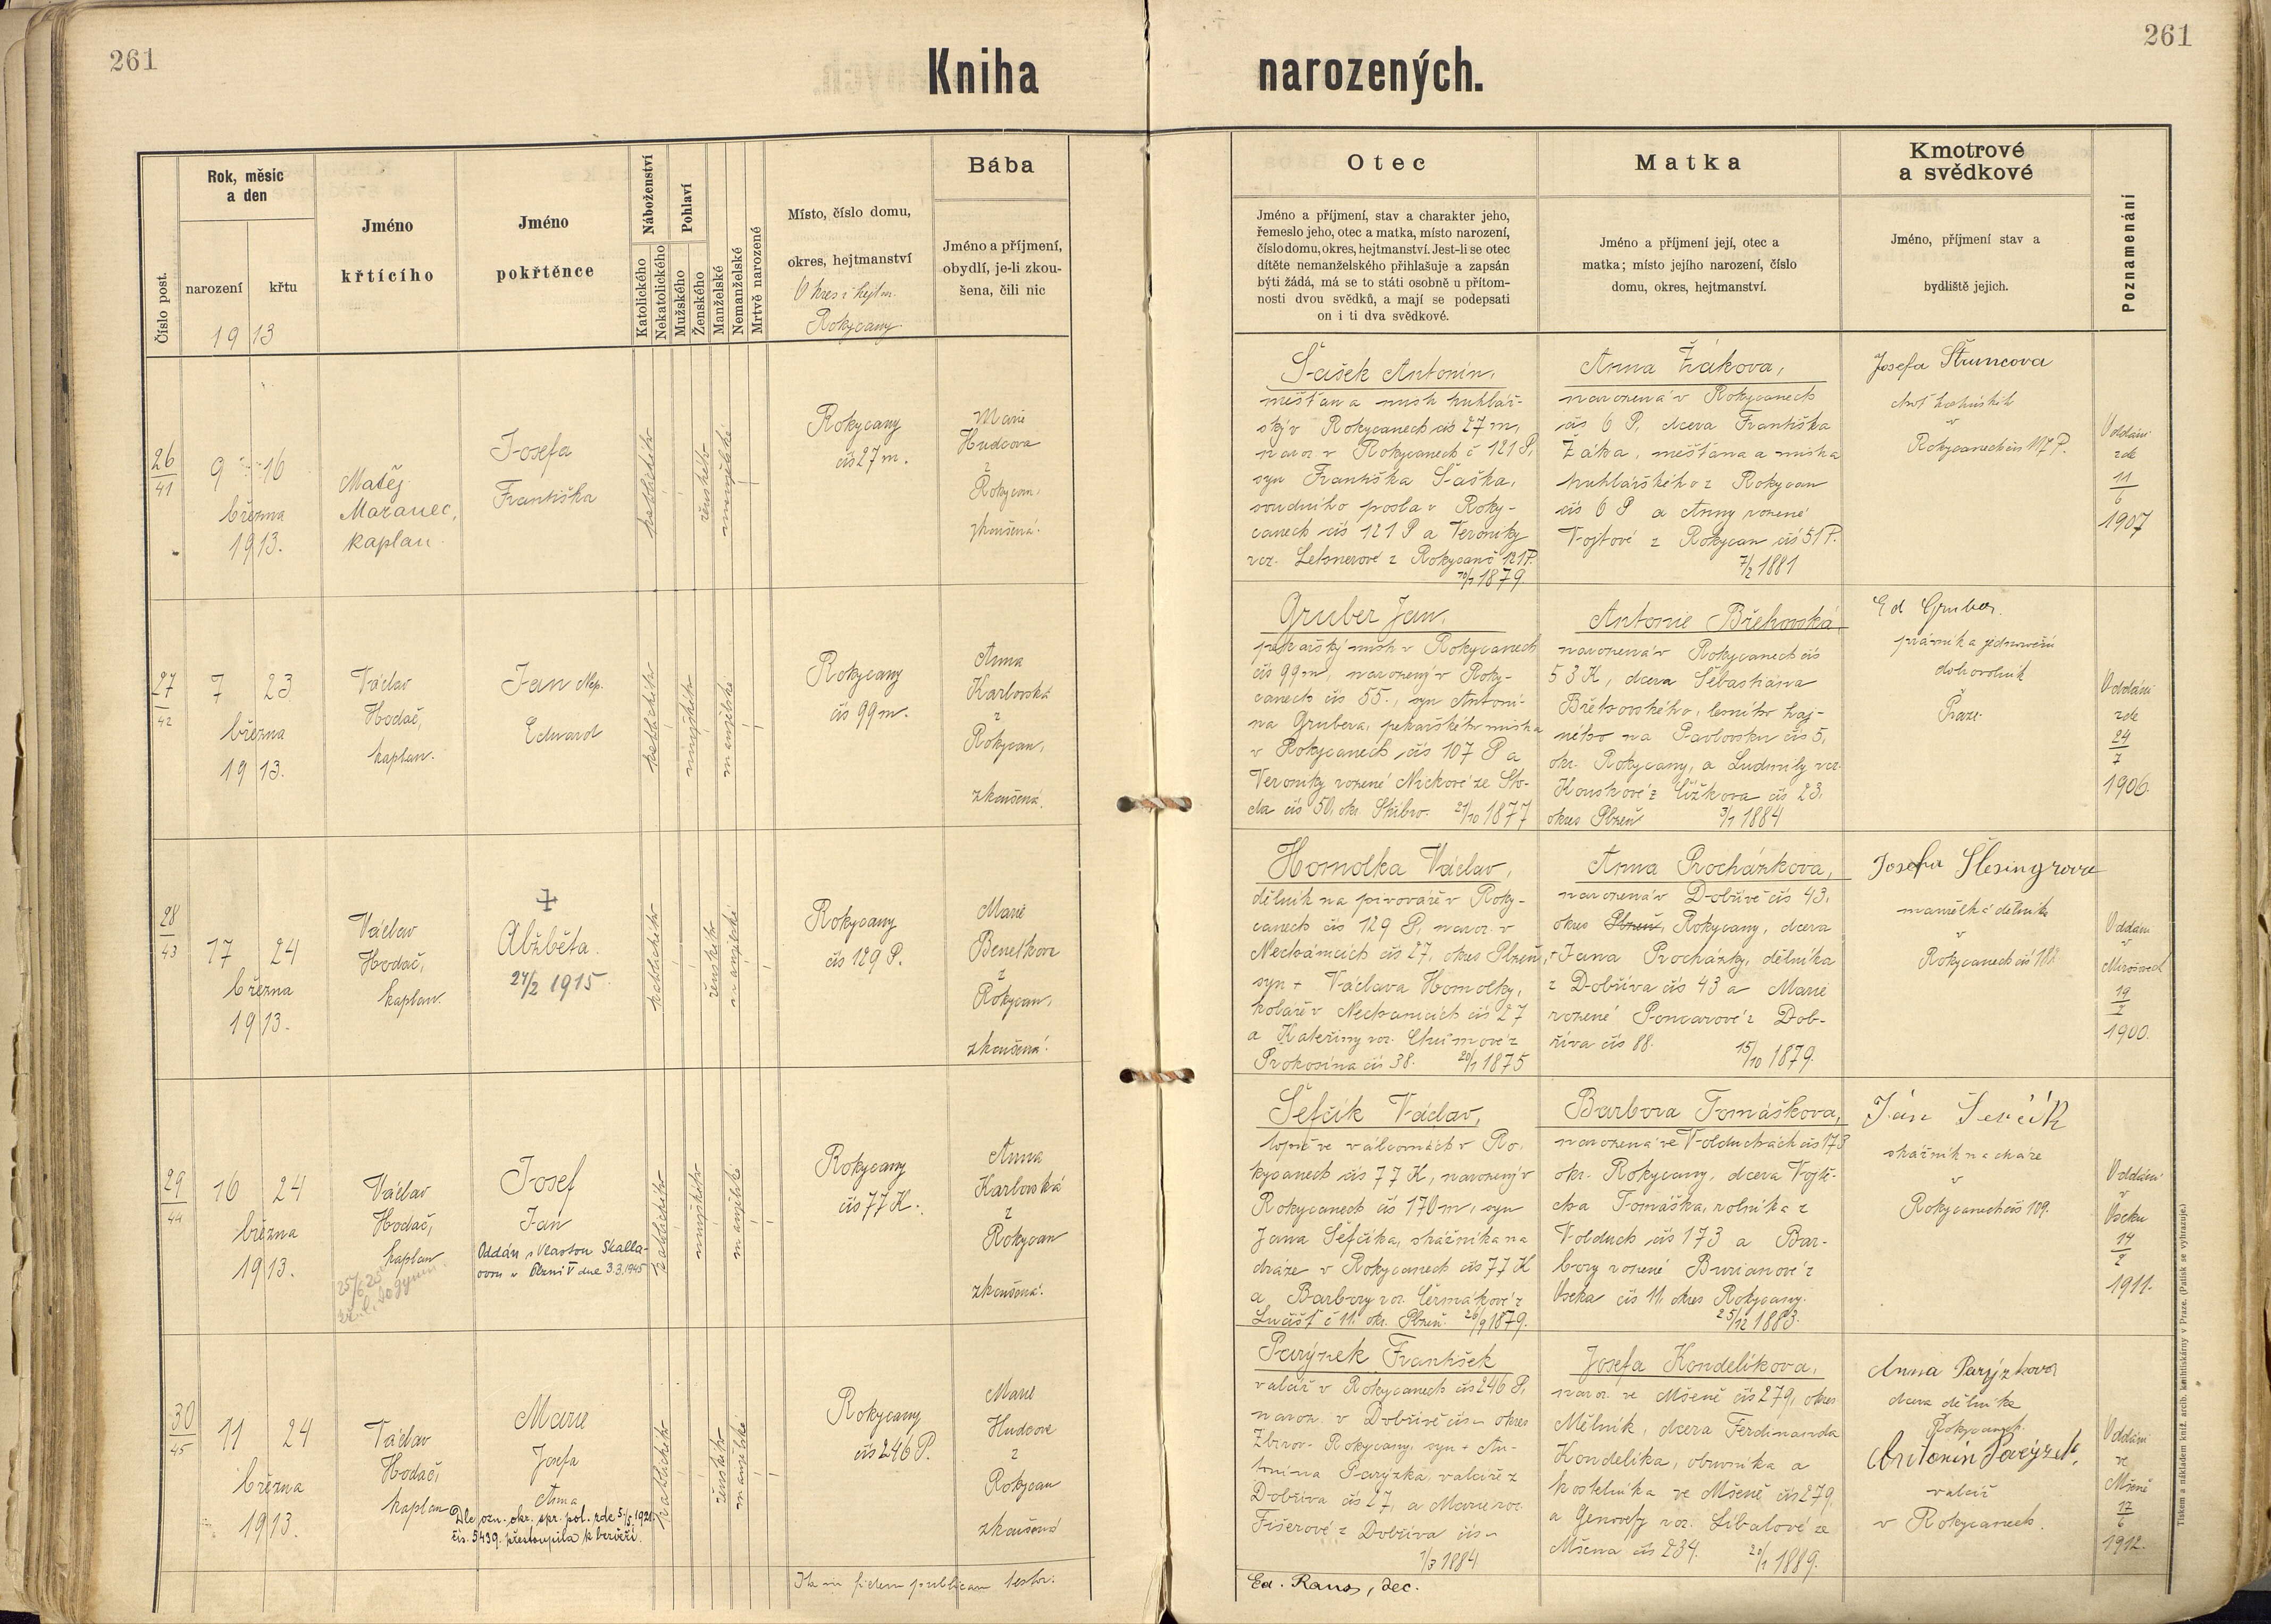 261
Kniha
narozených.
261
Číslo post.
Rok, měsíc
a den
narození
křtu
19 13
Jméno
křtícího
Jméno
pokřtěnce
Náboženství
Katolického
Nekatolického
Pohlaví
Mužského
Ženského
Manželské
Nemanželské
Mrtvě narozené
Místo, číslo domu,
okres, hejtmanství
Okres i hejtm.
Rokycany.
Bába
Jméno a příjmení,
obydlí, je-li zkou-
šena, čili nic
Otec
Jméno a příjmení, stav a charakter jeho,
řemeslo jeho, otec a matka, místo narození,
číslo domu, okres, hejtmanství. Jest-li se otec
dítěte nemanželského přihlašuje a zapsán
býti žádá, má se to státi osobně u přítom-
nosti dvou svědků, a mají se podepsati
on i ti dva svědkové.
Matka
Jméno a příjmení její, otec a
matka; místo jejího narození, číslo
domu, okres, hejtmanství.
Kmotrové
a svědkové
Jméno, příjmení stav a
bydliště jejich.
Poznamenání
26
41
9 16
března
1913.
Matěj
Mazanec,
kaplan
Josefa
Františka
katolického
ženského
manželské
Rokycany
čís 27 m.
Marie
Hudcova
z
Rokycan,
zkoušená.
Šašek Antonín,
měšťan a mistr truhlář-
ský v Rokycanech čís 27 m,
naroz v Rokycanech č 121 P,
syn Františka Šaška,
soudního posla v Roky-
canech čís 121 P a Veroniky
roz. Letznerové z Rokycan č 121 P.
1879.
Anna Žákova,
narozená v Rokycanech
čís 6 P, dcera Františka
Žáka, měšťana a mistra
truhlářského z Rokycan
čís 6 P a Anny rozené
Vojtové z Rokycan čís 51 P.
7/2 1881
Josefa Štruncova
v
Rokycanech čís 117 P.
Oddáni
zde
11
6
1907
27
42
7 23
března
1913.
Václav
Hodač,
kaplan.
Jan Nep.
Edward
katolického
mužského
manželské
Rokycany
čís 99 m.
Anna
Karlovská
z
Rokycan,
zkoušená.
Gruber Jan,
pekařský mistr v Rokycanech
čís 99 m, narozený v Roky-
canech čís 55., syn Antoní-
na Grubera, pekařského mistra
v Rokycanech čís 107 P a
Veroniky rozené Nickové ze Sto-
da čís 50, okr. Stříbro. 21/10 1877
Antonie Břehovská,
narozená v Rokycanech čís
53 K, dcera Šebastiána
Břehovského, lesního haj-
ného na Pavlovsku čís 5,
okr. Rokycany, a Ludmily roz.
čís 23,
okres Plzeň 3/1 1884
Ed Gruber.
právník a jednoroční
dobrovolník
Praze.
Oddáni
zde
24
7
1906.
28
43
17 24
března
1913.
Václav
Hodač,
kaplan.
Alžběta.
27/2 1915.
katolického
ženského
manželské
Rokycany
čís 129 P.
Marie
z
Rokycan,
zkoušená.
Homolka Václav,
dělník na pivováře v Roky-
canech čís 129 P, naroz. v
Nechanicích čís 27, okres Plzeň,
syn + Václava Homolky,
koláře v Nechanicích čís 27
a Kateřiny roz.
Prokosina čís 38. 20/1 1875
Anna Procházkova,
narozená v Dobřívě čís 43,
okres Plzeň, Rokycany, dcera
+ Jana Procházky, dělníka
z Dobříva čís 43 a Marie
rozené Poncarové z Dob-
říva čís 88. 15/10 1879.
Josefa Šlesingrova
manželka dělníka
v
Oddáni
v
Mirošově
19
2
1900.
29
44
16 24
března
1913.
Václav
Hodač,
kaplan
Josef
Jan
Oddán s Vlastou Skalla-
ovou v Plzni V dne 3.3.1945
katolického
mužského
manželské
Rokycany
čís 77 K.
Anna
Karlovská
z
Rokycan
zkoušená.
Šefčík Václav,
topič ve válcovnách v Ro-
kycanech čís 77 K, narozený v
Rokycanech čís 170 m, syn
Jana Šefčíka, strážníka na
dráze v Rokycanech čís 77 K
a Barbory roz. Čermákové z
č 11. okr. Plzeň. 26/9 1879.
Barbora Tomáškova,
narozená ve Volduchách čís 173
okr. Rokycany, dcera Vojtě-
cha Tomáška, rolníka z
Volduch čís 173 a Bar-
bory rozené Burianové z
Oseka čís 11, okres Rokycany.
25/12 1883.
Jan Šefčík
strážník na dráze
v
Rokycanech čís 109.
Oddáni
v
Oseku
14
2
1911.
30
45
11 24
března
1913.
Václav
Hodač,
kaplan
Marie
Josefa
Anna
Dle ozn. okr. spr. pol. zde 5/5 1921
čís. 5439. přestoupila k bezvěří.
katolického
ženského
manželské
Rokycany
čís 246 P.
Marie
Hudcova
z
Rokycan
zkoušená
Parýzek František
valcíř v Rokycanech čís 246 P,
naroz. v Dobřívě čís – okres
Zbirov - Rokycany, syn + An-
tonína Parýzka, valcíře z
Dobříva čís 27, a Marie roz.
Fišerové z Dobříva čís –
1/3 1884
Josefa Kondelíkova,
naroz. ve Mšeně čís 279, okres
Mělník, dcera Ferdinanda
Kondelíka, obuvníka a
kostelníka ve Mšeně čís 279,
a Genovefy roz. Líbalové ze
Mšena čís 234. 20/1 1889.
Anna Parýzkova
dcera dělníka
Rokycanech.
Antonín Parýzek,
valcíř
v Rokycanech.
Oddáni
ve
Mšeně
17
6
1912.
Ita in fidem publicam testor:
Ed. Raus, dec.
Tiskem a nákladem kníž. arcib. knihtiskárny v Praze. (Patisk se vyhrazuje.)